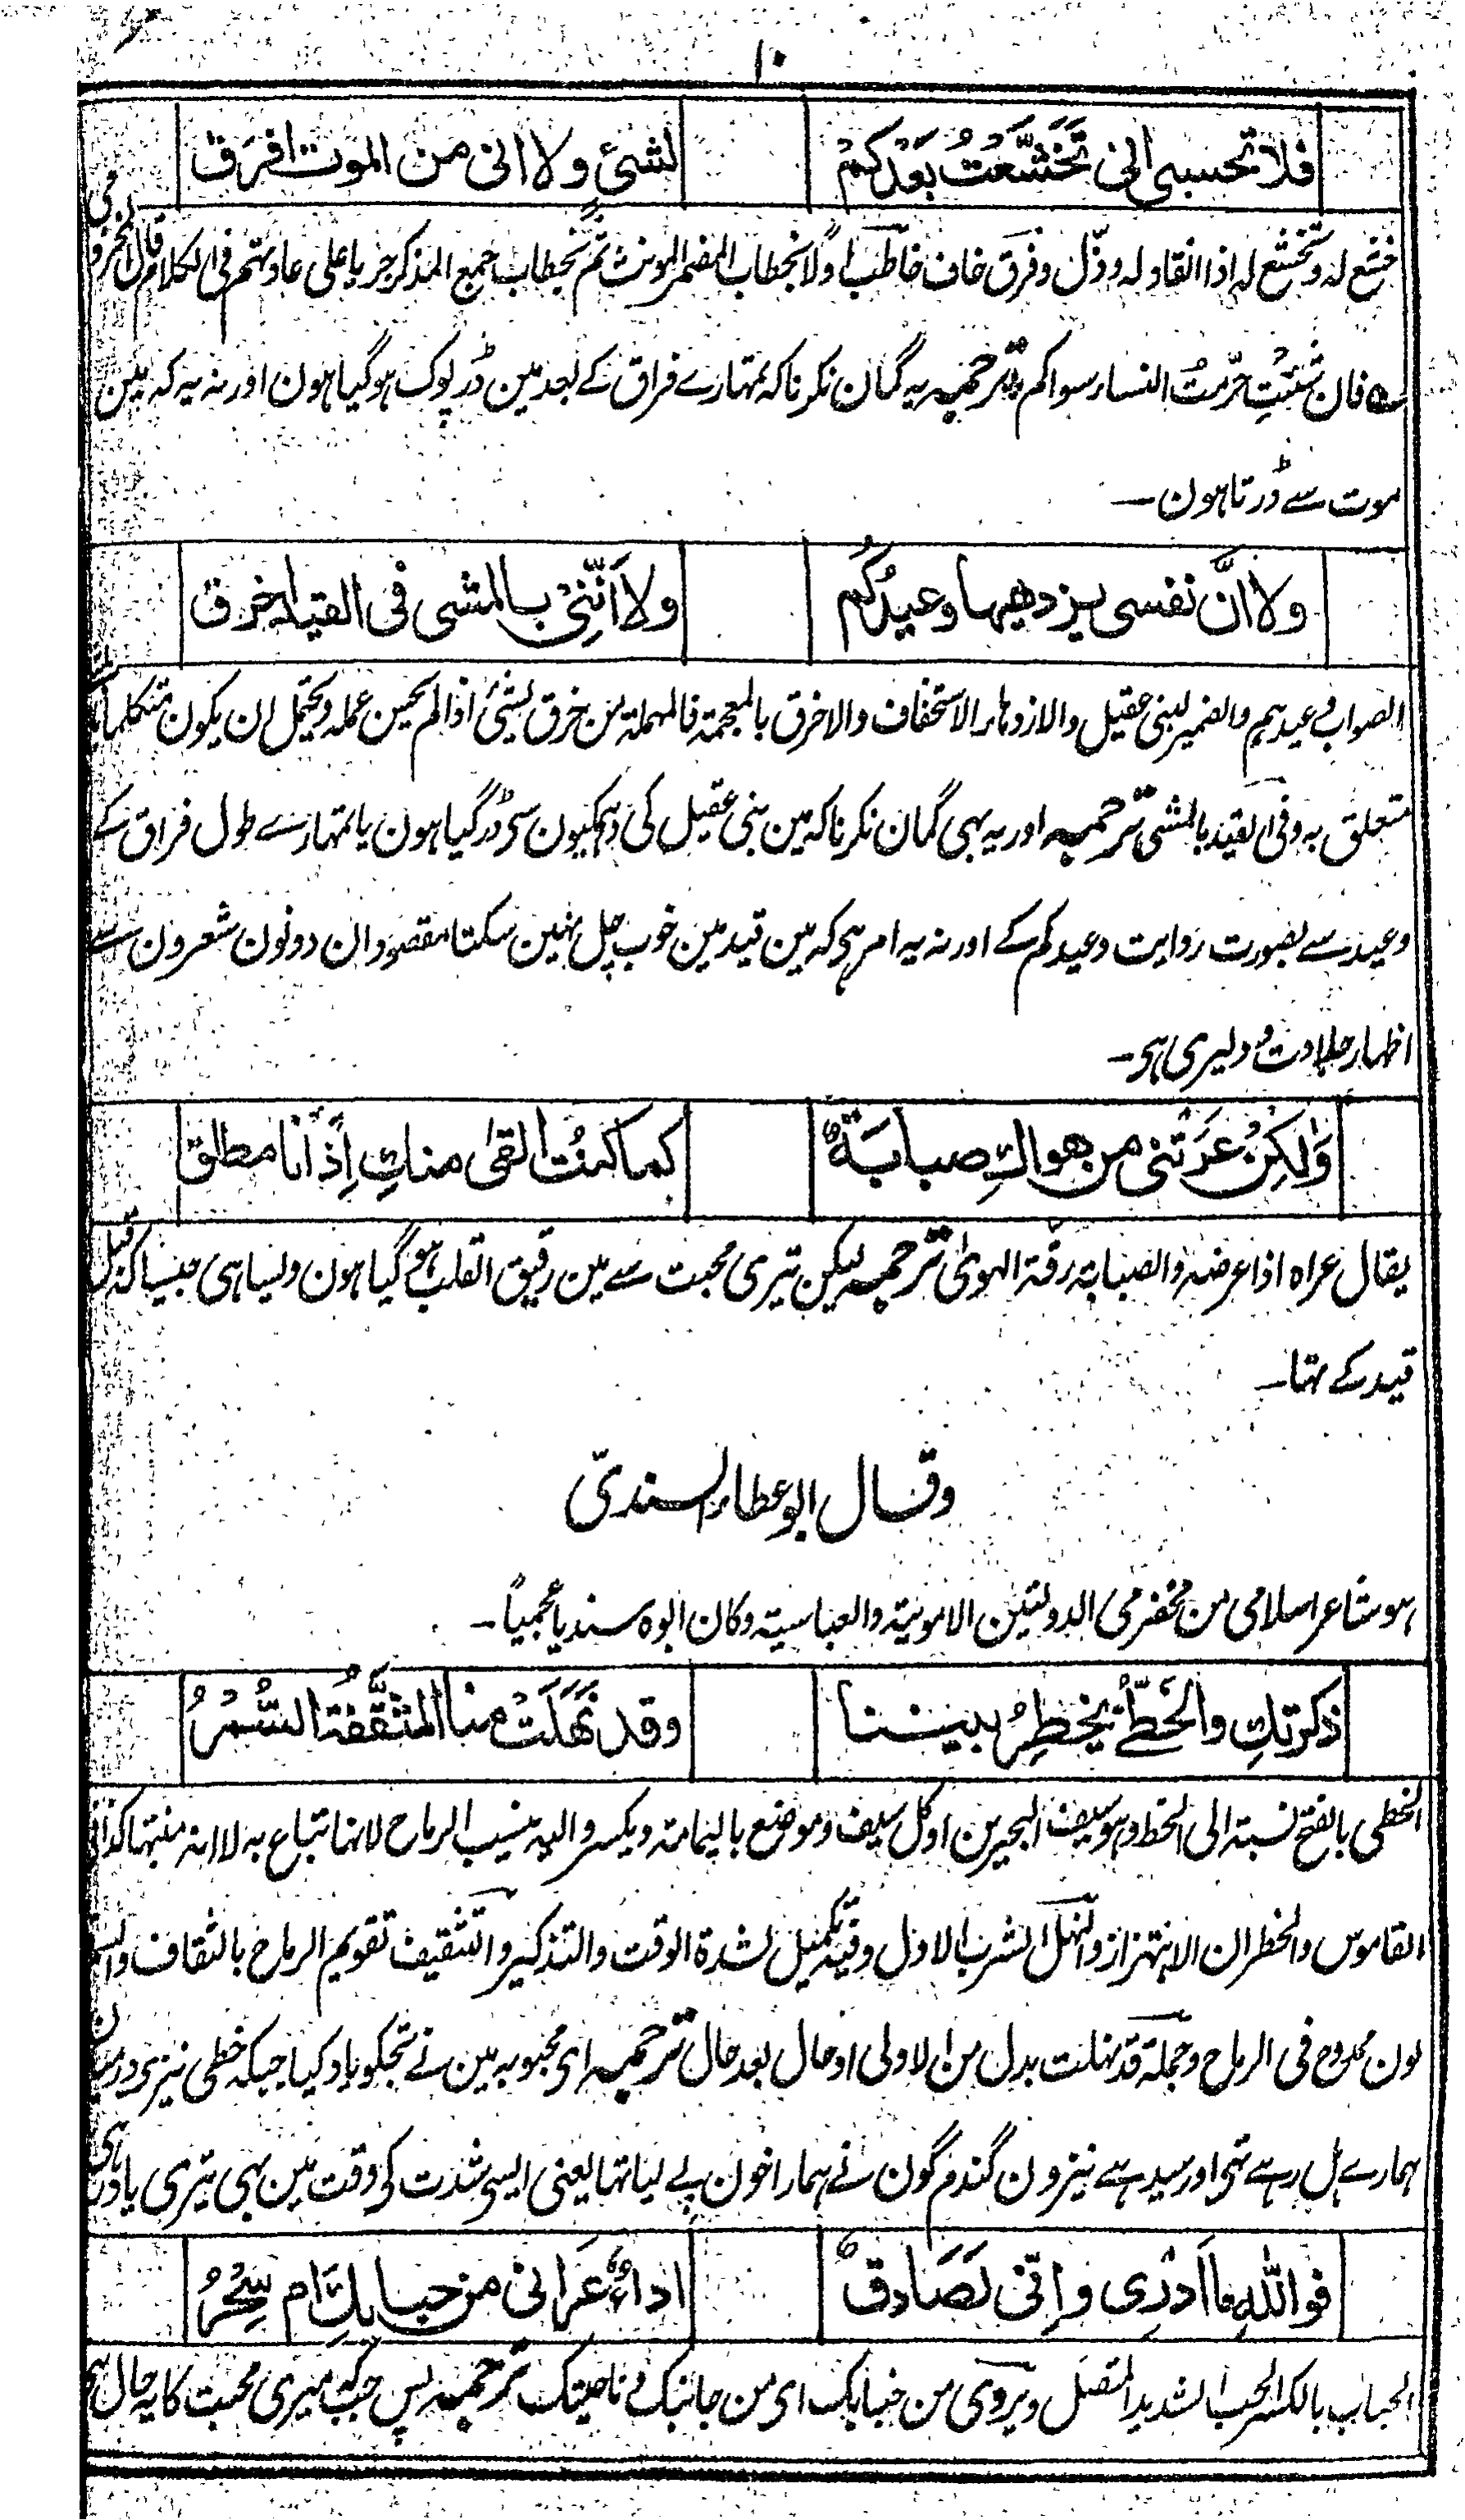 ۱۰
فلا تحسبی انی تَخَشَّعْتُ بَعْدَكُمْ لشیءٍ ولا انی من الموت افرَق
خشع له وتخشع له اذا انقاد له وذل وفرق خاف خاطب اولا بخطاب المفرد المونث ثم بخطاب جمع المذکر جریا علی عادتهم فی الکلام قال العرجی
ے فان شئتِ حرّمتُ النساء سواکم ترجمہ یہ گمان نکرنا کہ تمہارے فراق کے بعد مین ڈرپوک ہوگیا ہون اور نہ یہ کہ مین
موت سے ڈرتا ہون۔
ولا انّ نفسی یزدهیها وعیدُکُم ولا اَنَّنِیْ بالمشی فی القید اخرق
الصواب وعیدہم والضمیر لبنی عقیل والازدهاء الاستخفاف والاخرق بالمعجمة فالمهملة من خرق لشئ اذا لم یحسن عمله ویحتمل ان یکون متکلما
متعلق به وفی القید بالمشی ترجمہ اور یہ بھی گمان نکرنا کہ مین بنی عقیل کی دہمکیون سی ڈر گیا ہون یا تمہارے طول فراق کے
وعید سے بصورت روایت وعیدکم کے اور نہ یہ امر ہی کہ مین قید مین خوب چل نہین سکتا مقصود ان دونون شعرون سے
اظہار جلادت و دلیری ہی۔
وَلٰکِنْ عَرَتْنی من هواكِ صبابَةٌ کما کنتُ القیٰ منكِ اِذْ اَنا مطلق
یقال عراه اذا عرضه والصبابة رقة الہویٰ ترجمہ لیکن تیری محبت سے مین رقیق القلب ہو گیا ہون ویسا ہی جیسا کہ قبل
قید کے تہا۔
وقال ابوعطاء السندیّ
ہو شاعر اسلامی من مخضرمی الدولتین الامویة والعباسیة وکان ابوه سندیا عجمیاً۔
ذکرتكِ والخَطّیُّ یخطِرُ بیننا وقد نَهَلَتْ منا المثقَّفةُ السُّمْرُ
الخطی بالفتح نسبة الی الخط وہو سیف البحرین او کل سیف وموضع بالیمامة ویکسر والیه ینسب الرماح لانها تباع به لا انه منبتها کذا فی
القاموس والخطران الاہتزاز والنہل الشرب الاول وفیه تکمیل لشدة الوقت والتذکیر والتثقیف تقویم الرماح بالثقاف والسمرة
لون ممدوح فی الرماح وجملة قد نہلت بدل من الاولی او حال بعد حال ترجمہ ای محبوبہ مین نے تجکو یاد کیا جبکہ خطی نیزی درمیان
ہمارے ہل رہے تھی اور سیدہے نیزون گندم گون نے ہمارا خون پے لیا تہا یعنی ایسی شدت کی وقت مین بہی تیری یاد رہی
فواللهِ ما اَدْرِی و اِنّی لَصَادِقٌ اداءٌ عَرَانی من حبابِكَ ام سِحْرُ
الحباب بالکسر الحب الشدید المتصل ویروی من جنابک ای من جانبک و ناحیتک ترجمہ پس جبکہ میری محبت کا یہ حال ہی